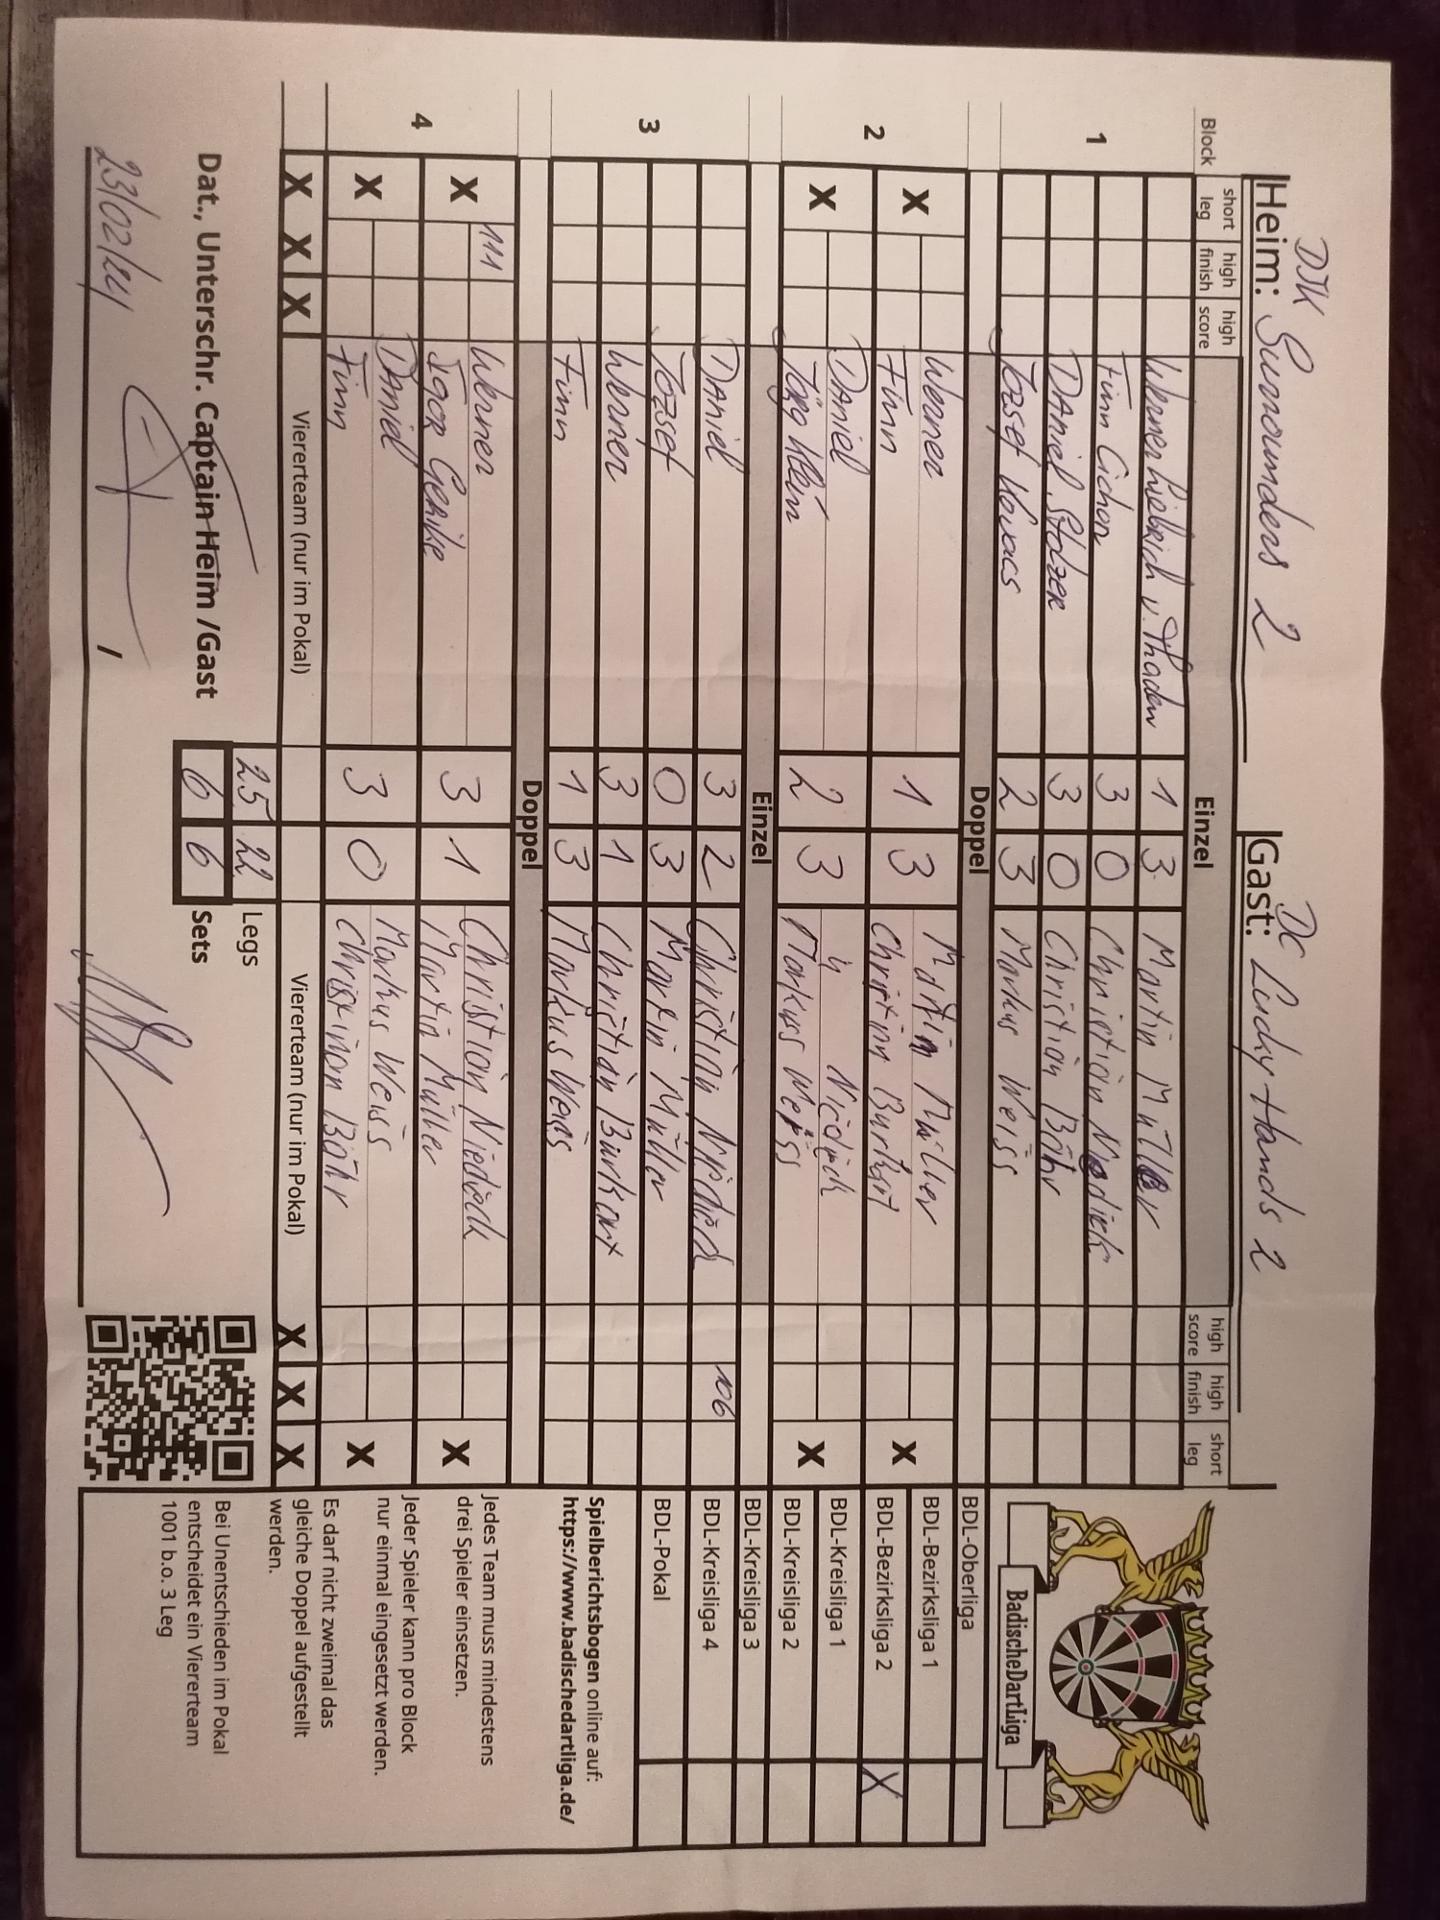 DJK
Heim: Surrounders 2
DC
Gast: Lucky Hands 2
Block
short leg
high finish
high score
Einzel
high score
high finish
short leg
1
Werner Liebrich v. Thaden 1 3 Martin Müller
Finn Cichon 3 0 Christian Niedick
DAniel Stolzer 3 0 Christian Bähr
József Kovacs 2 3 Markus Weiss
Doppel
2
X Werner 1 3 Martin Müller X
Finn Christian Burkart
X DAniel 2 3 Niedick X
Jörg Klein Markus Weiss
Einzel
3
DAniel 3 2 Christian Niedick 106
József 0 3 Martin Müller
Werner 3 1 Christian Burkart
Finn 1 3 Markus Weiss
Doppel
4
X 111 Werner 3 1 Christian Niedick X
Igor Gerike Martin Müller
X DAniel 3 0 Markus Weiss X
Finn Christian Bähr
X X X Viererteam (nur im Pokal) Viererteam (nur im Pokal) X X X
25 22 Legs
Dat., Unterschr. Captain Heim /Gast 6 6 Sets
23/02/24 ,
BadischeDartLiga
BDL-Oberliga
BDL-Bezirksliga 1
BDL-Bezirksliga 2 X
BDL-Kreisliga 1
BDL-Kreisliga 2
BDL-Kreisliga 3
BDL-Kreisliga 4
BDL-Pokal
Spielberichtsbogen online auf:
https://www.badischedartliga.de/
Jedes Team muss mindestens
drei Spieler einsetzen.
Jeder Spieler kann pro Block
nur einmal eingesetzt werden.
Es darf nicht zweimal das
gleiche Doppel aufgestellt
werden.
Bei Unentschieden im Pokal
entscheidet ein Viererteam
1001 b.o. 3 Leg